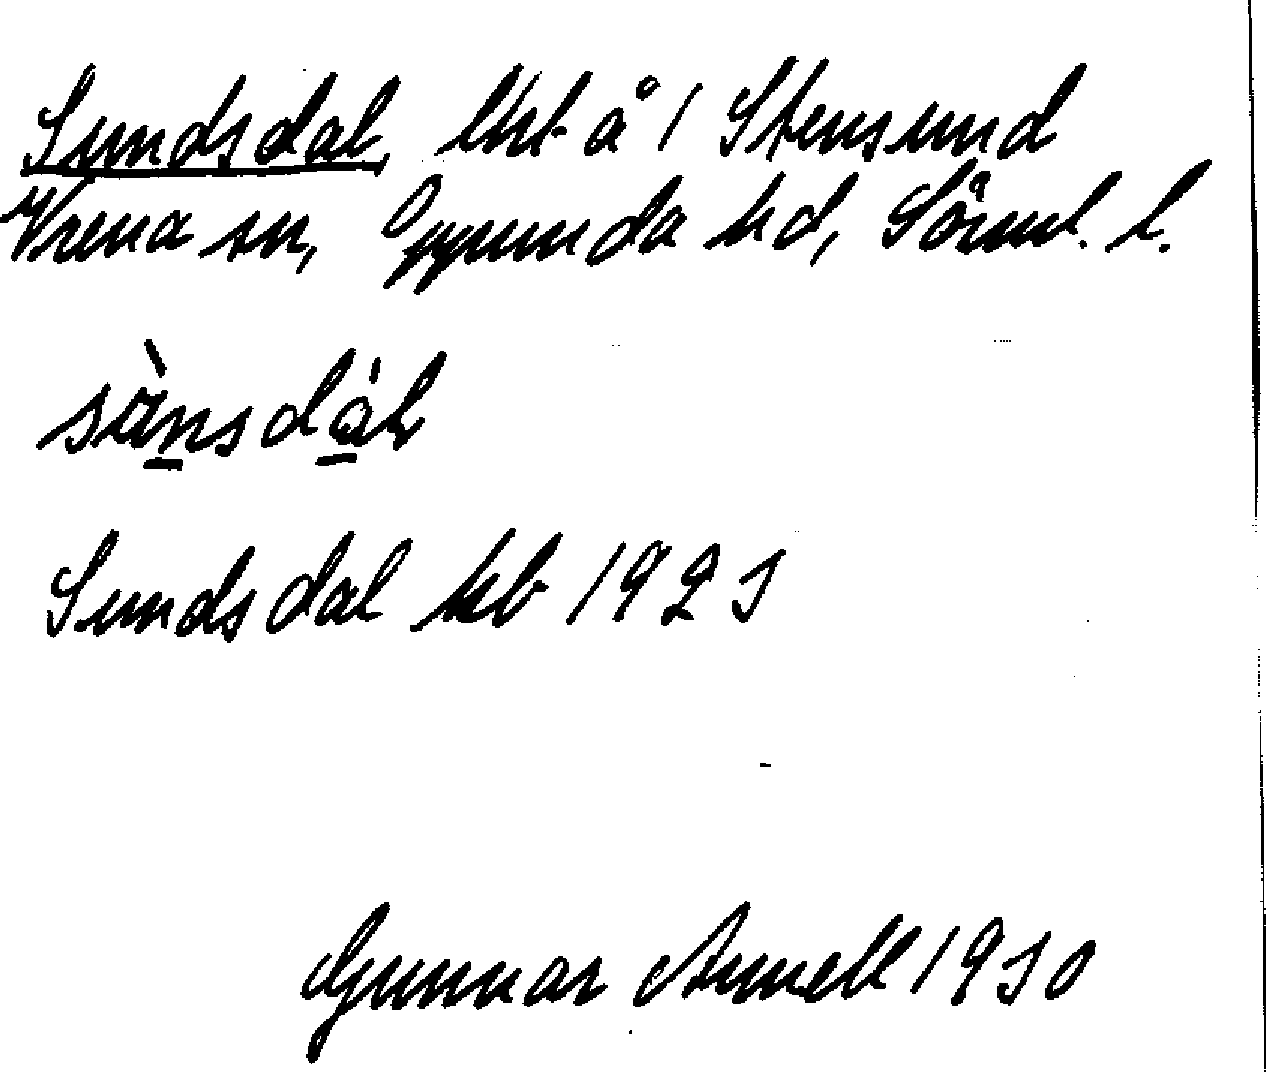 Sundsdal, lht å 1 Stensund
Vrena sn, Oppunda hd, Sörml. l.
sànsdáɫ
Sundsdal kb 1925
Gunnar Arnell 1930